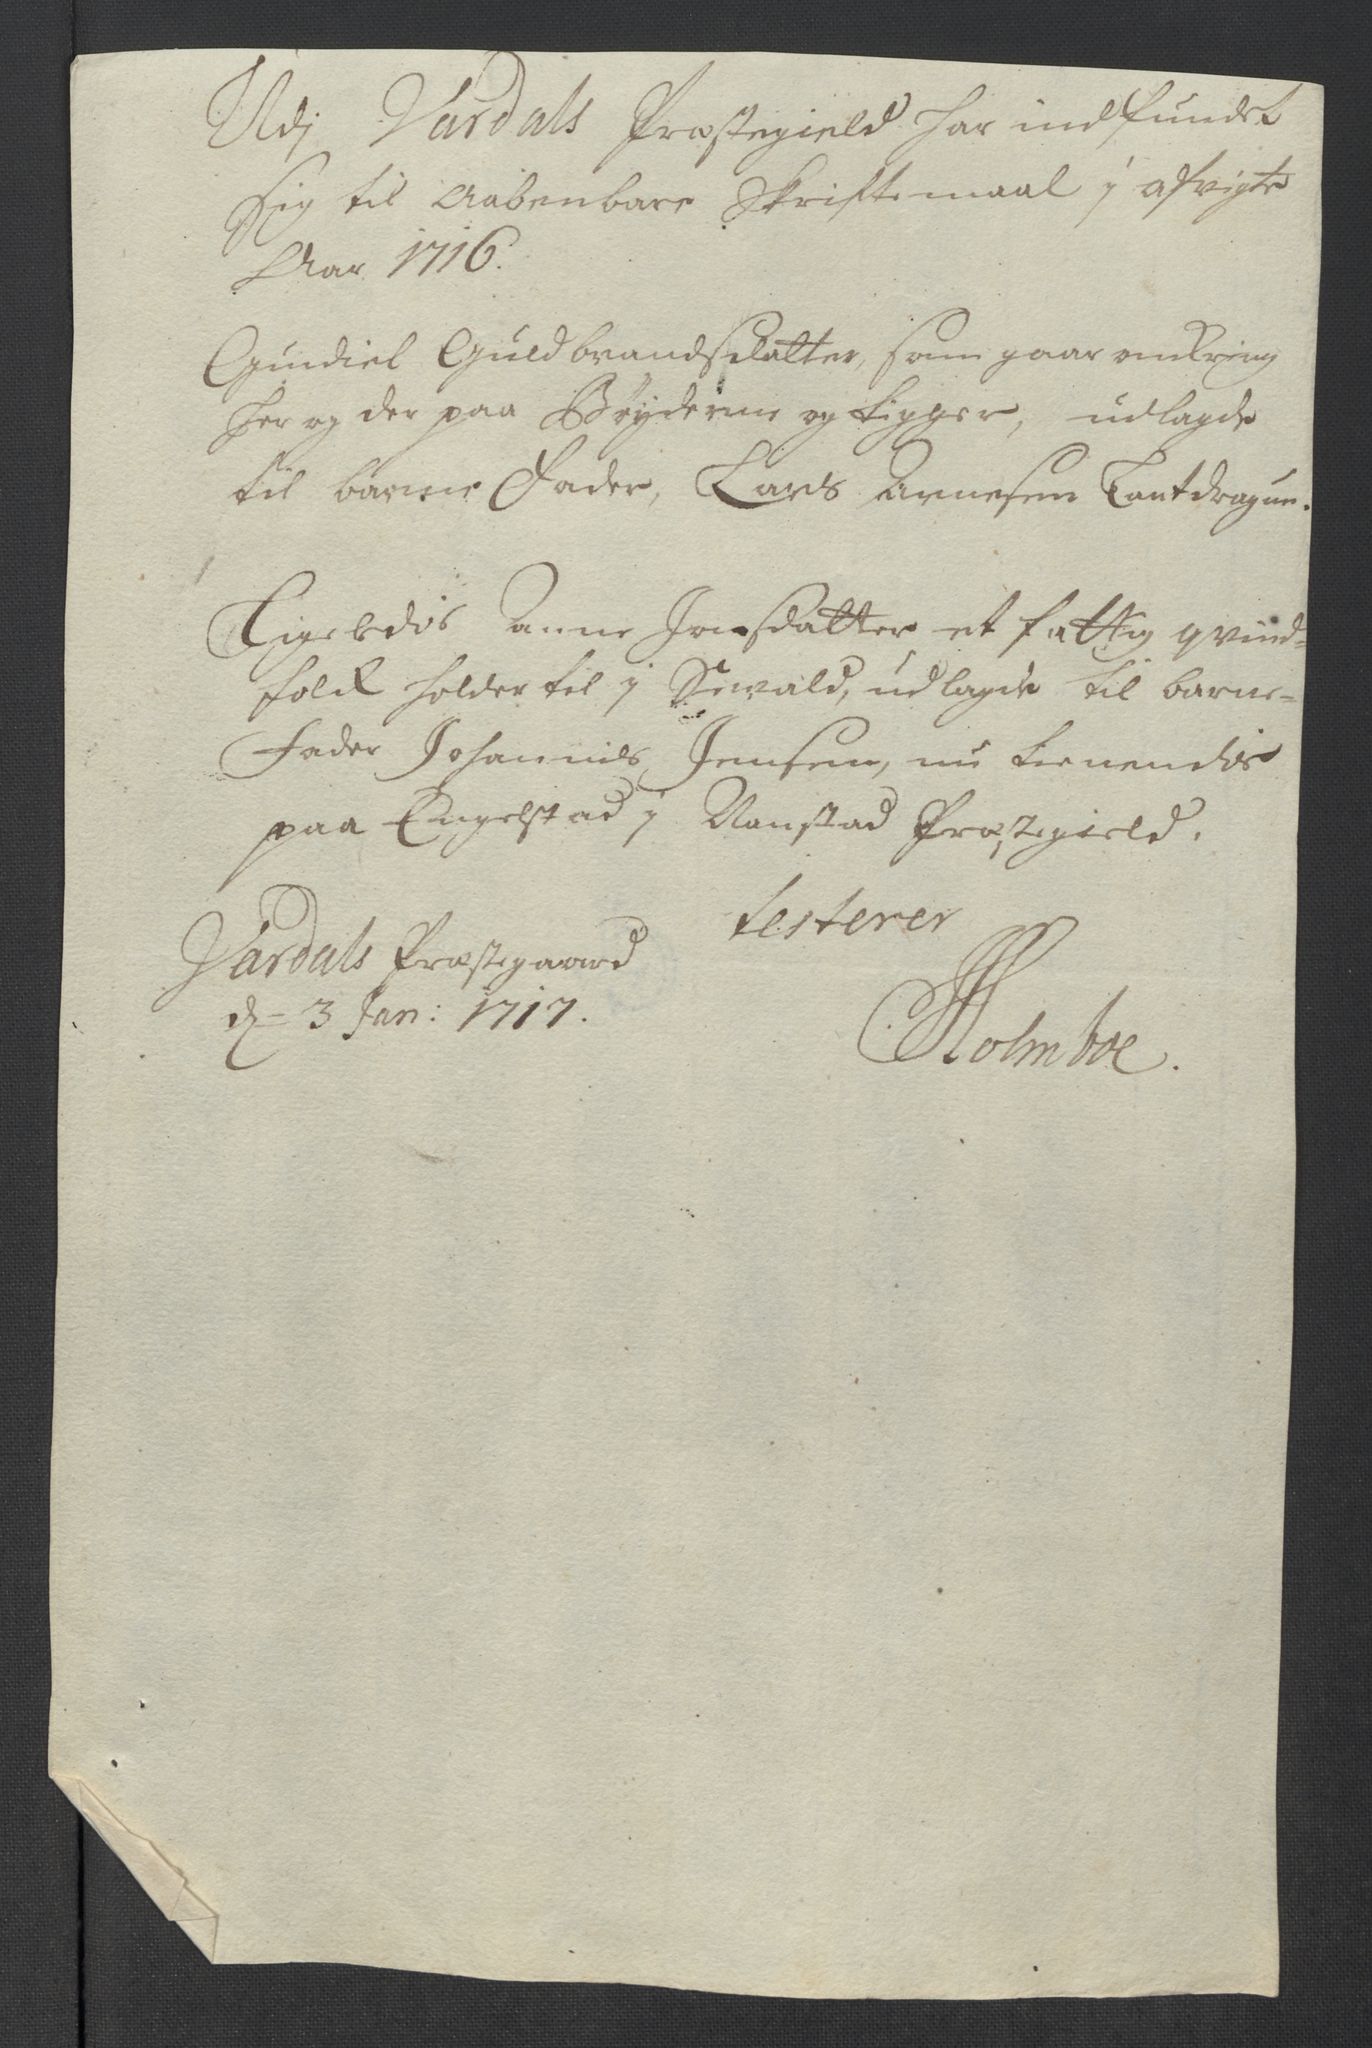 Udj Vardals Præstegield har indfundet
sig til Aabenbare Skriftemaal j afvigte
Aar 1716.
Gundiel Guldbrandsdatter, som gaar omkring
her og der paa Bøyderne og tigger, udlagde
til barne Fader, Lars Arnesen Landdragun.
Ligeledis Anne Jonsdatter et fattig qvind-
folk holder til j Snevald, udlagde til barne-
Fader Johannes Jensen, nu tienendis
paa Engelstad j Vanstad Præstegield.
testerer
Vardals Præstegaard
d= 3 Jan: 1717.
Holmboe.